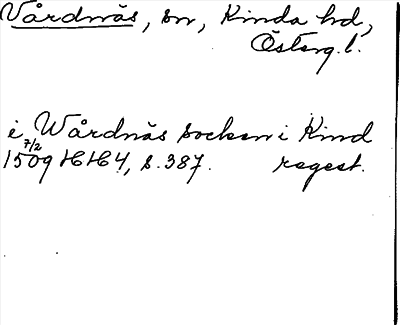 Vårdnäs, sn, Kinda hd,
Österg. l.
i Wårdnäs socken i Kind
7/2
1509 HH4, s. 387. regest.